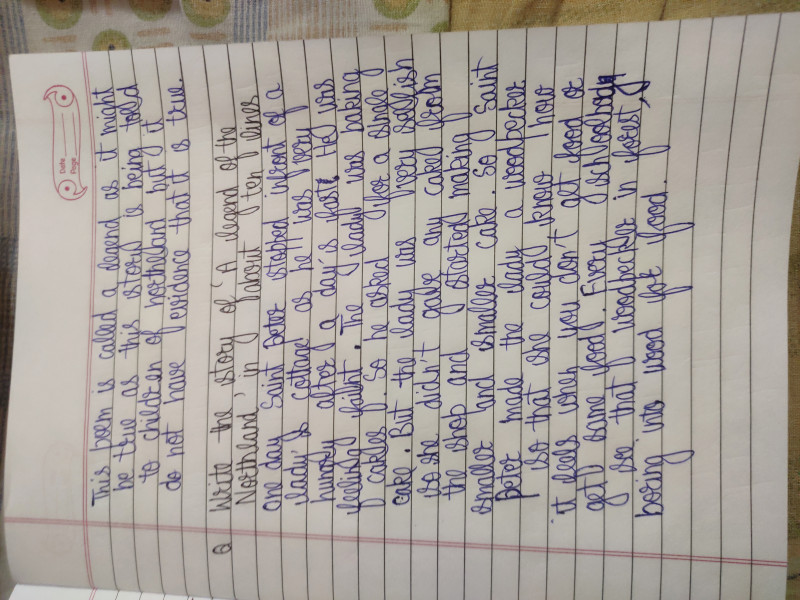 Date
Page
This poem is called a legend as it might
be true as this story is being told
to children of northland but it
do not have evidence that it is true.
Q Write the story of 'A legend of the
Northland' in about ten lines
One day Saint Peter stopped infront of a
lady's cottage as he was very
hungry after a day's fast. He was
feeling faint. The lady was baking
cakes. So he asked for a single
cake. But the lady was very selfish
so she didn't gave any cake from
the shop and started making
smaller and smaller cake. So Saint
Peter made the lady a woodpecker
so that she could know how
it feels when you don't get food or
get some food. Every schoolboy
see that woodpecker in forest,
boring into wood for food.